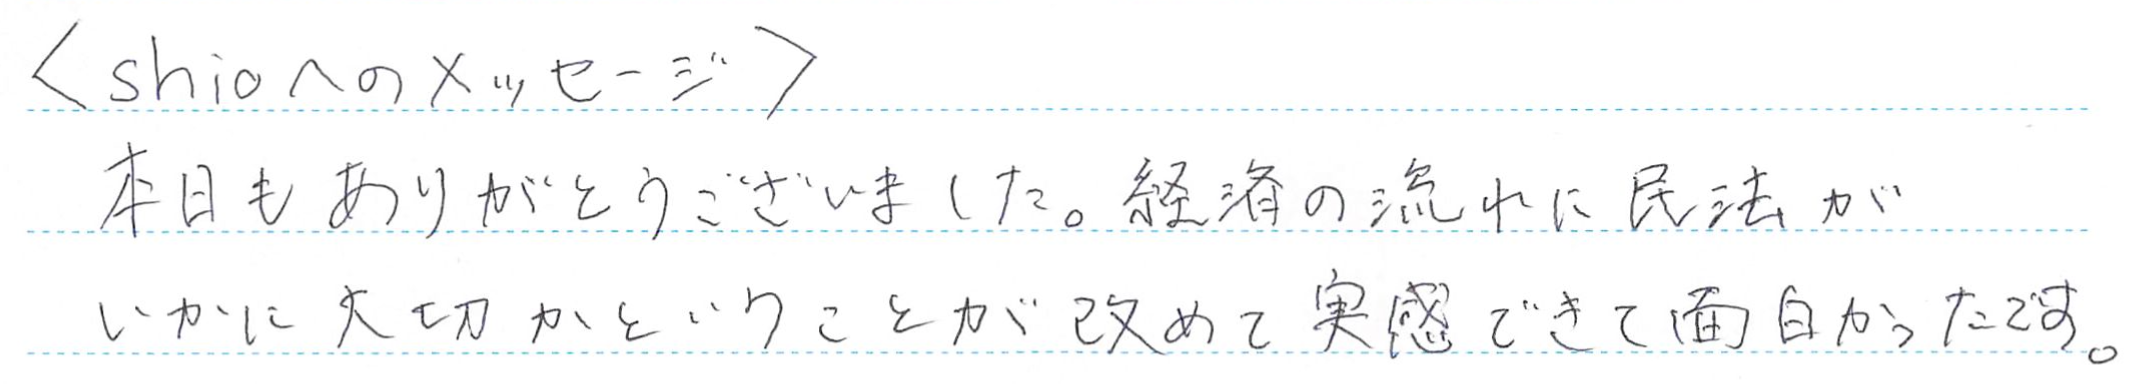 〈shioへのメッセージ〉
本日もありがとうございました。経済の流れに民法が
いかに大切かということが改めて実感できて面白かったです。